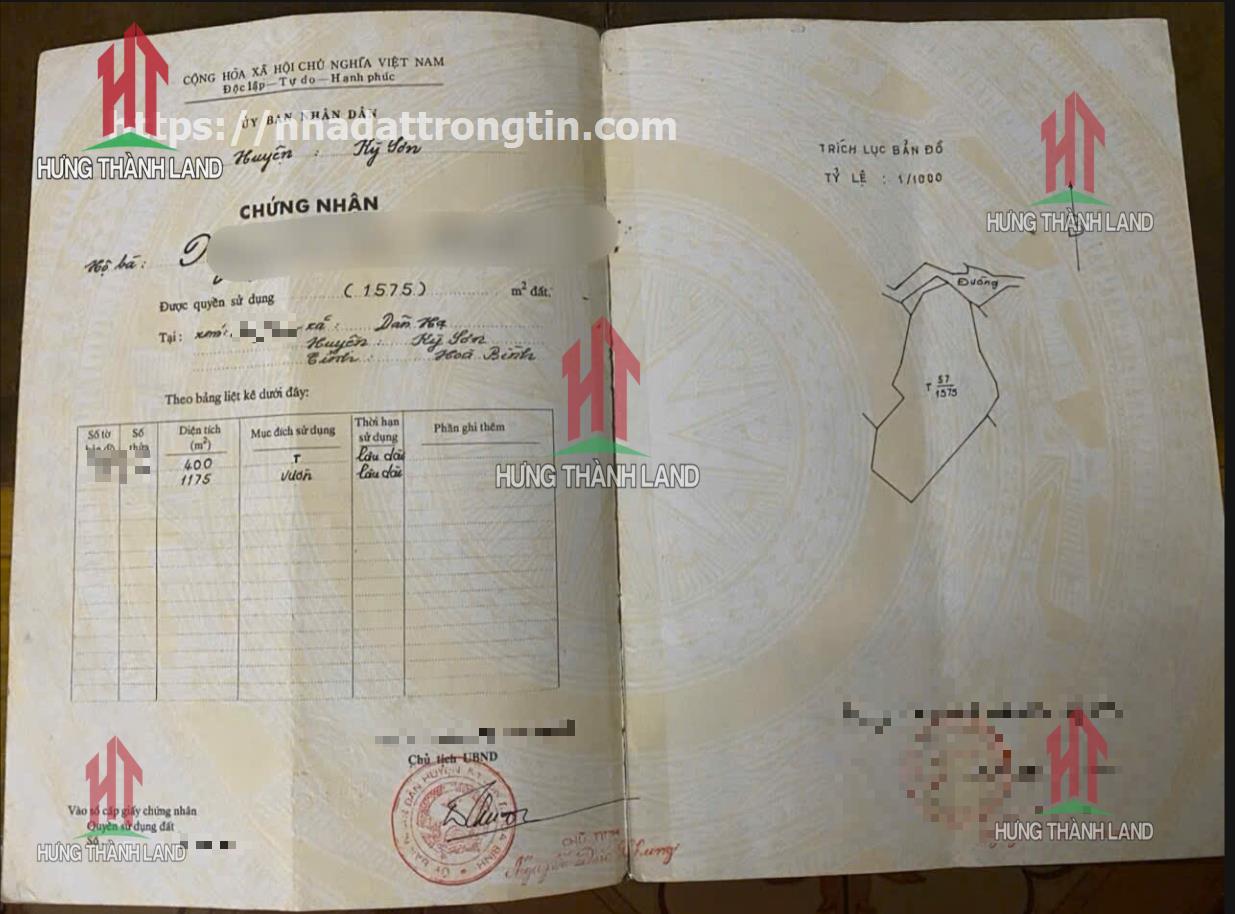 CỘNG HÒA XÃ HỘI CHỦ NGHĨA VIỆT NAM
Độc lập — Tự do — Hạnh phúc
ỦY BAN NHÂN DÂN
https://nhadattrongtin.com
Huyện : Kỳ Sơn
HƯNG THÀNH LAND
CHỨNG NHẬN
Hộ bà:
Được quyền sử dụng (1575) m² đất,
Tại : xóm: xã : Dân Hạ
Huyện : Kỳ Sơn
Tỉnh : Hoà Bình
Theo bảng liệt kê dưới đây:
Số tờ Số thửa Diện tích (m²) Mục đích sử dụng Thời hạn sử dụng Phần ghi thêm
400 T Lâu dài
1175 vườn Lâu dài
Chủ tịch UBND
Vào sổ cấp giấy chứng nhận
Quyền sử dụng đất
Số
HƯNG THÀNH LAND
CHỦ TỊCH
HƯNG THÀNH LAND
TRÍCH LỤC BẢN ĐỒ
TỶ LỆ : 1/1000
HƯNG THÀNH LAND
Đường
T 57
1575
HƯNG THÀNH LAND